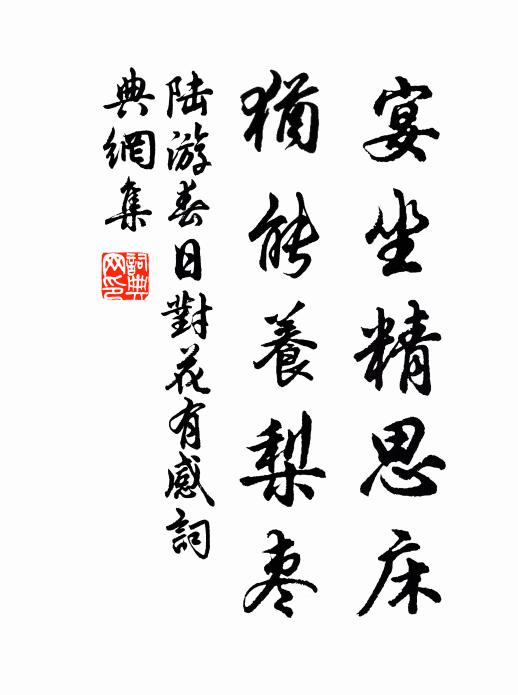 宴坐精思床
猶能養梨棗
陸游春日對花有感詞
典網集
詞典网印